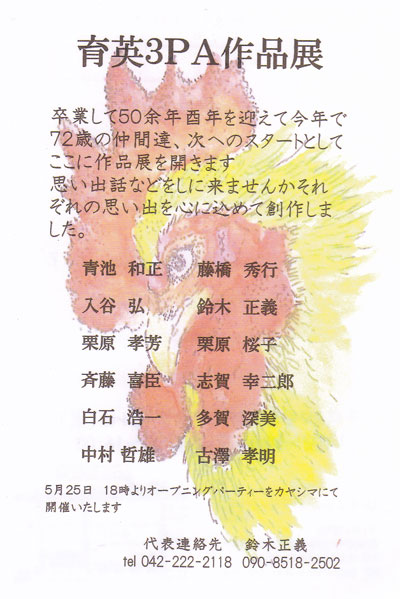 育英3PA作品展
卒業して50余年酉年を迎えて今年で
72歳の仲間達、次へのスタートとして
ここに作品展を開きます
思い出話などをしに来ませんかそれ
ぞれの思い出を心に込めて創作しま
した。
青池 和正 藤橋 秀行
入谷 弘 鈴木 正義
栗原 孝芳 栗原 桜子
斉藤 喜臣 志賀 幸二郎
白石 浩一 多賀 深美
中村 哲雄 古澤 孝明
5月25日 18時よりオープニングパーティーをカヤシマにて
開催いたします
代表連絡先 鈴木正義
tel 042-222-2118 090-8518-2502